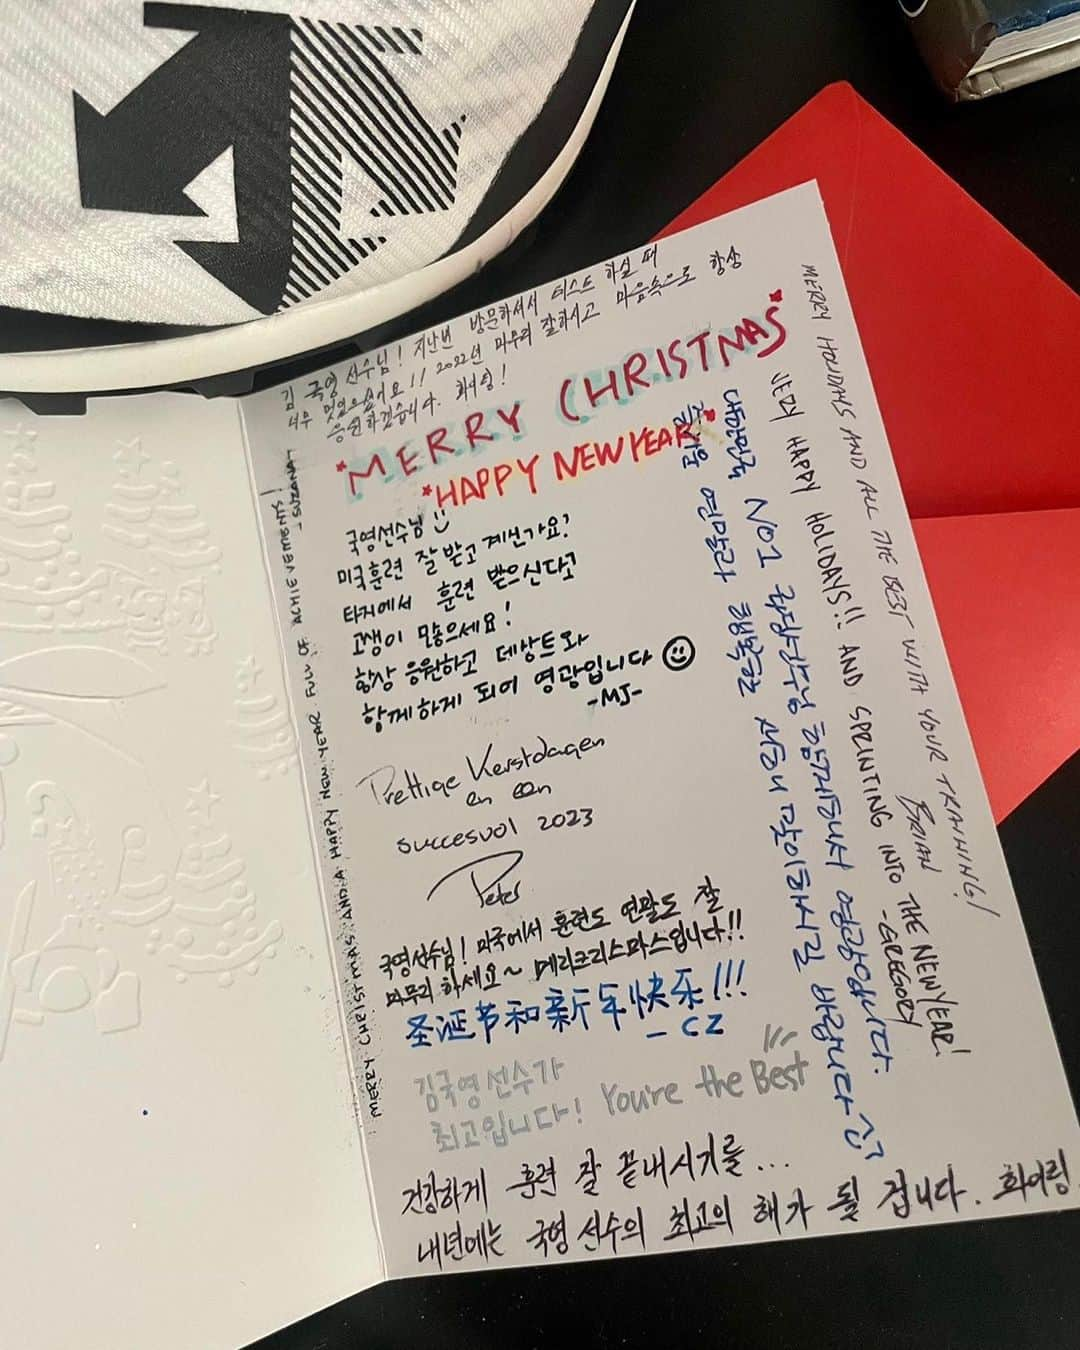 김 국영 선수님! 지난번 방문하셔서 테스트 하실 때
너무 멋있으셨어요!! 2022년 마무리 잘하시고 마음속으로 항상
응원하겠습니다. 화이팅!
*MERRY CHRISTMAS*
*HAPPY NEW YEAR*
국영선수님
미국훈련 잘 받고 계신가요?
타지에서 훈련 받으신다고
고생이 많으세요!
항상 응원하고 데상트와
함께하게 되어 영광입니다
-MJ-
Prettige Kerstdagen
en een
succesvol 2023
Peter
국영선수님! 미국에서 훈련도 연말도 잘
마무리 하세요~ 메리크리스마스입니다!!
圣诞节和新年快乐!!!
- CZ
김국영 선수가
최고입니다! You're the Best
건강하게 훈련 잘 끝내시기를...
내년에는 국영 선수의 최고의 해가 될 겁니다. 화이팅
MERRY CHRISTMAS AND A HAPPY NEW YEAR FULL OF ACHIEVEMENTS!
- SUZANA
MERRY HOLIDAYS AND ALL THE BEST WITH YOUR TRAINING!
BRIAN
VERY HAPPY HOLIDAYS!! AND SPRINTING INTO THE NEW YEAR!
- GREGORY
대한민국 NO1 김국영선수님 함께해서 영광입니다.
즐거운 연말과 행복한 새해 맞이하시길 바랍니다